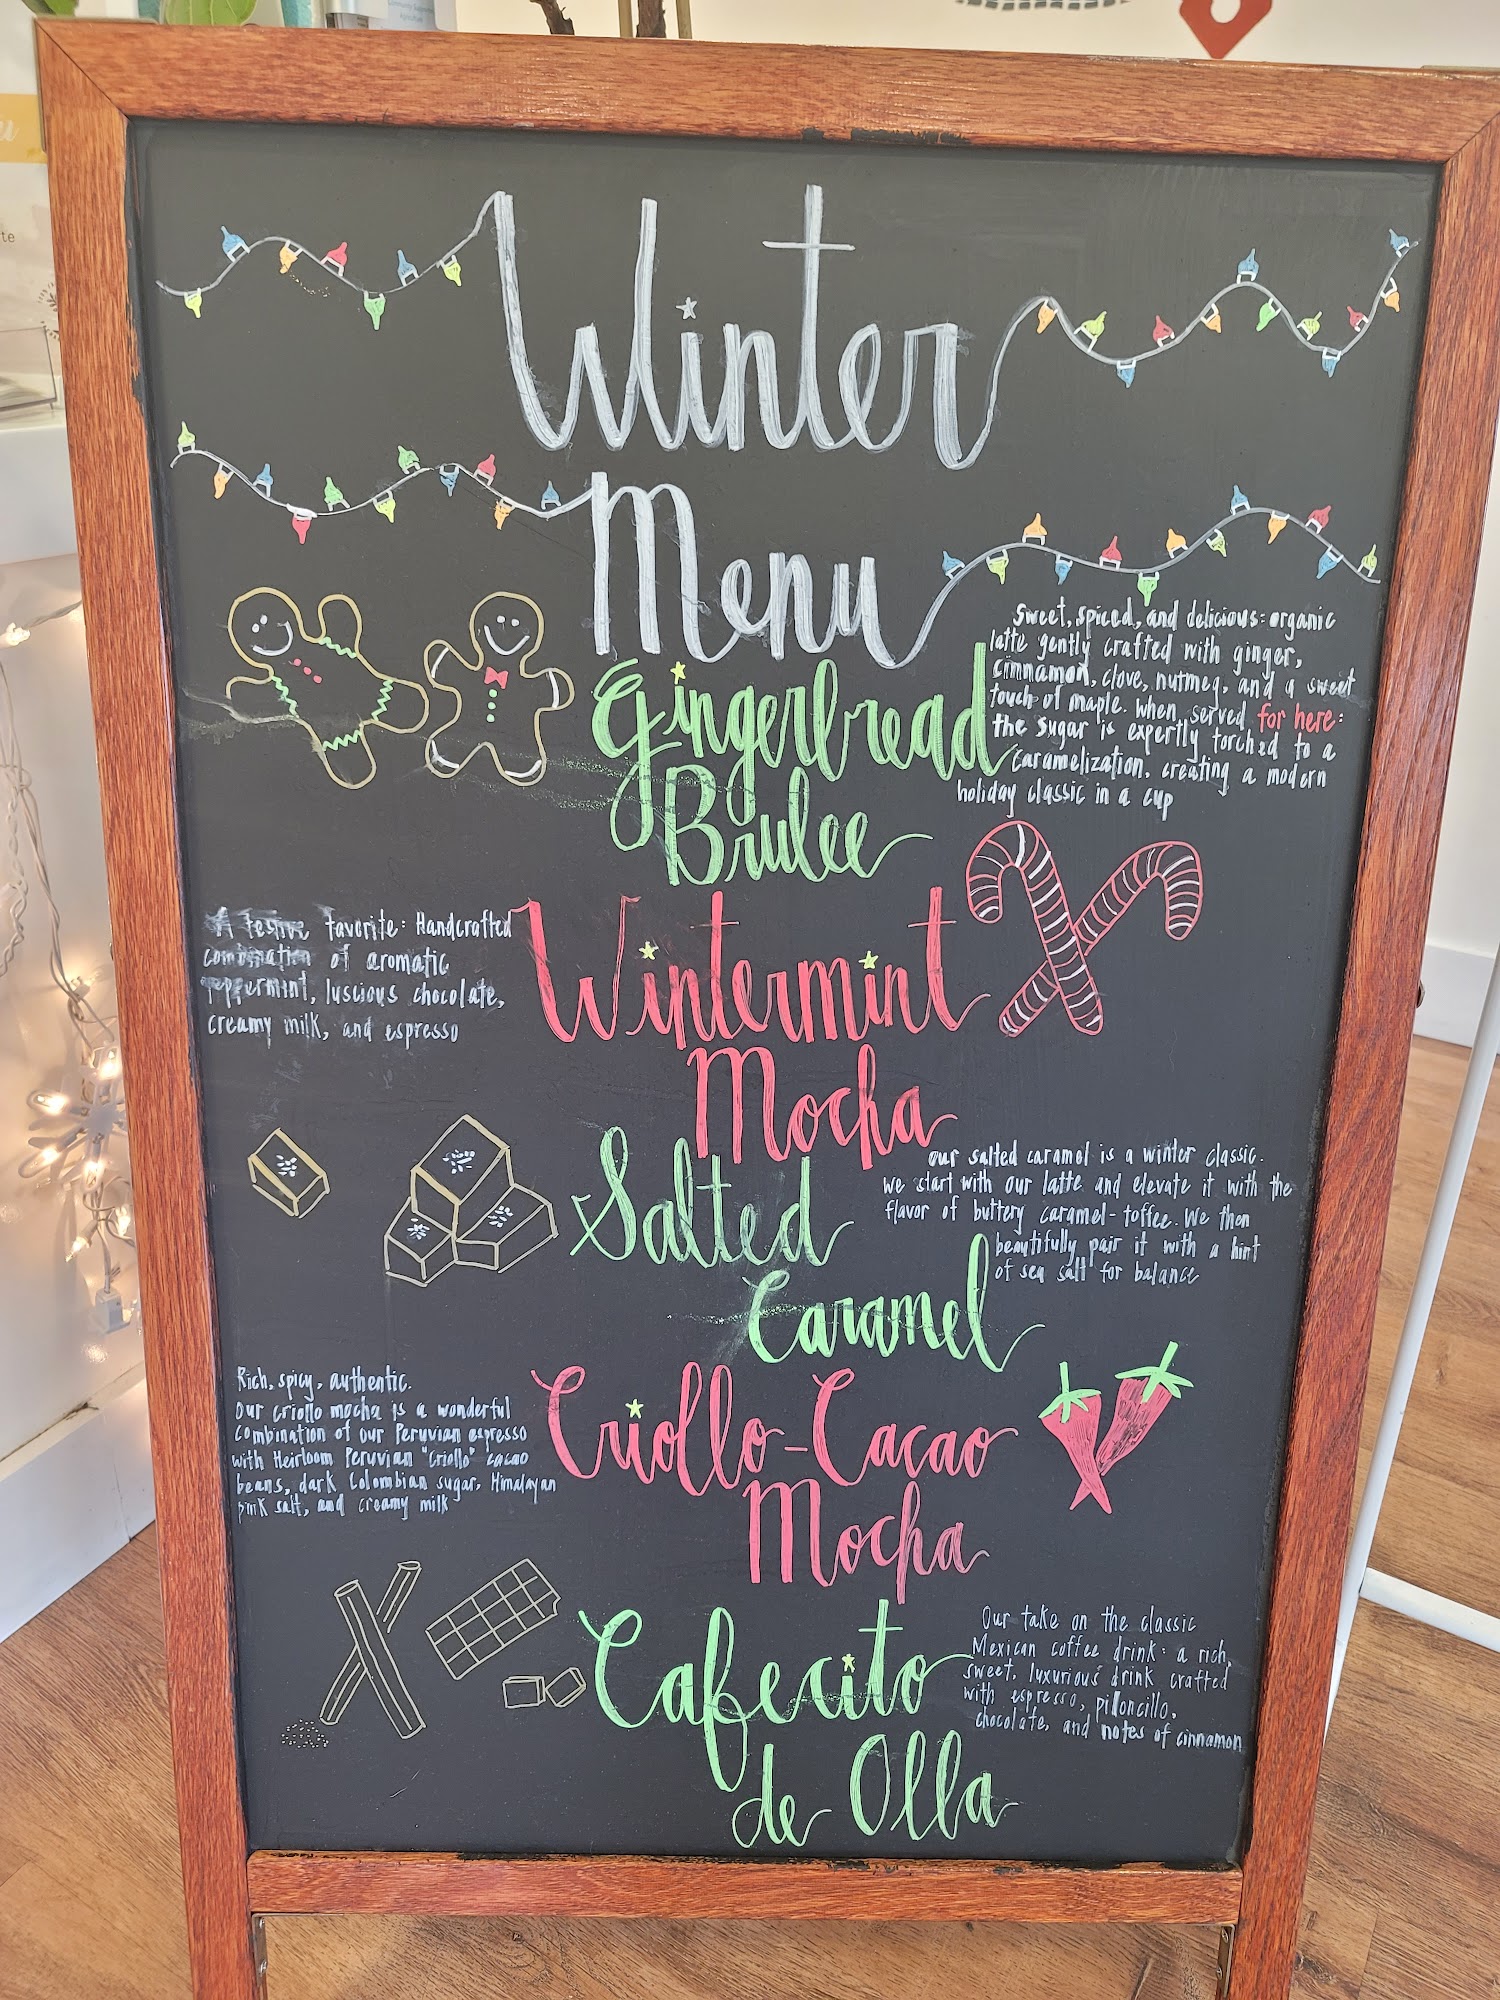 Community Supported
Agriculture
u
te
Winter
Menu
Gingerbread
Brulee
Sweet, spiced, and delicious: organic
latte gently crafted with ginger,
cinnamon, clove, nutmeg, and a sweet
touch of maple. When served for here:
the sugar is expertly torched to a
caramelization, creating a modern
holiday classic in a cup
Wintermint
Mocha
A festive favorite: Handcrafted
combination of aromatic
peppermint, luscious chocolate,
creamy milk, and espresso
Salted
Caramel
Our salted caramel is a winter classic.
We start with our latte and elevate it with the
flavor of buttery caramel-toffee. We then
beautifully pair it with a hint
of sea salt for balance
Criollo-Cacao
Mocha
Rich, spicy, authentic.
Our criollo mocha is a wonderful
combination of our Peruvian espresso
with Heirloom Peruvian "Criollo" cacao
beans, dark Colombian sugar, Himalayan
pink salt, and creamy milk
Cafecito
de Olla
Our take on the classic
Mexican coffee drink: a rich,
sweet, luxurious drink crafted
with espresso, piloncillo,
chocolate, and notes of cinnamon